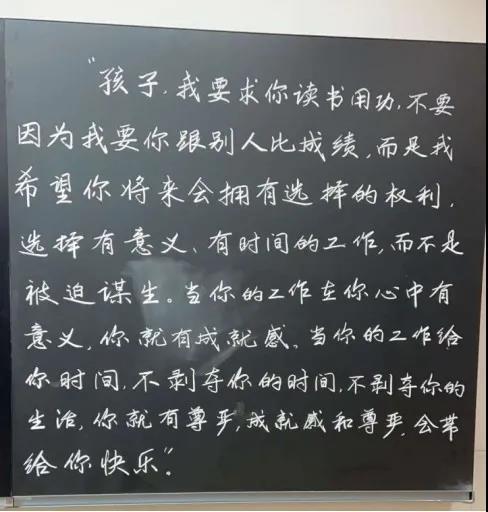 "孩子,我要求你读书用功,不要
因为我要你跟别人比成绩,而是我
希望你将来会拥有选择的权利,
选择有意义、有时间的工作,而不是
被迫谋生。当你的工作在你心中有
意义,你就有成就感。当你的工作给
你时间,不剥夺你的时间,不剥夺你的
生活,你就有尊严,成就感和尊严,会带
给你快乐。"